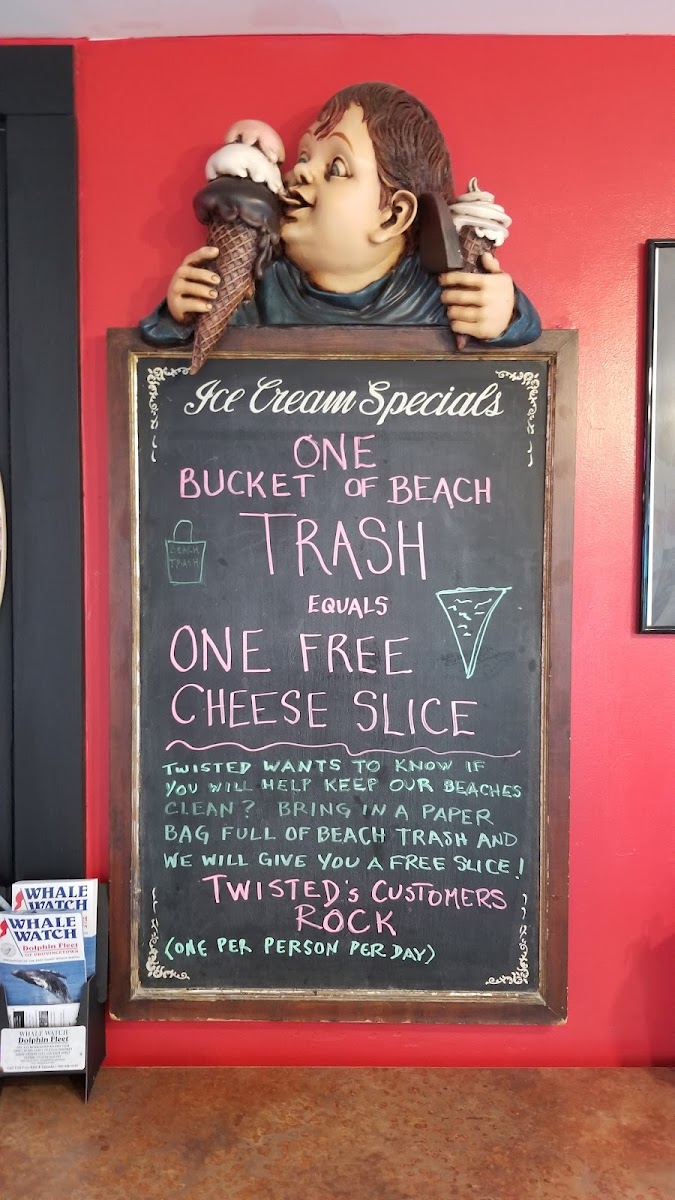 Ice Cream Specials
ONE
BUCKET OF BEACH
TRASH
BEACH
TRASH
EQUALS
ONE FREE
CHEESE SLICE
TWISTED WANTS TO KNOW IF
YOU WILL HELP KEEP OUR BEACHES
CLEAN? BRING IN A PAPER
BAG FULL OF BEACH TRASH AND
WE WILL GIVE YOU A FREE SLICE!
TWISTED'S CUSTOMERS
ROCK
(ONE PER PERSON PER DAY)
WHALE
WATCH
WHALE
WATCH
Dolphin Fleet
OF PROVINCETOWN
WHALE WATCH
Dolphin Fleet